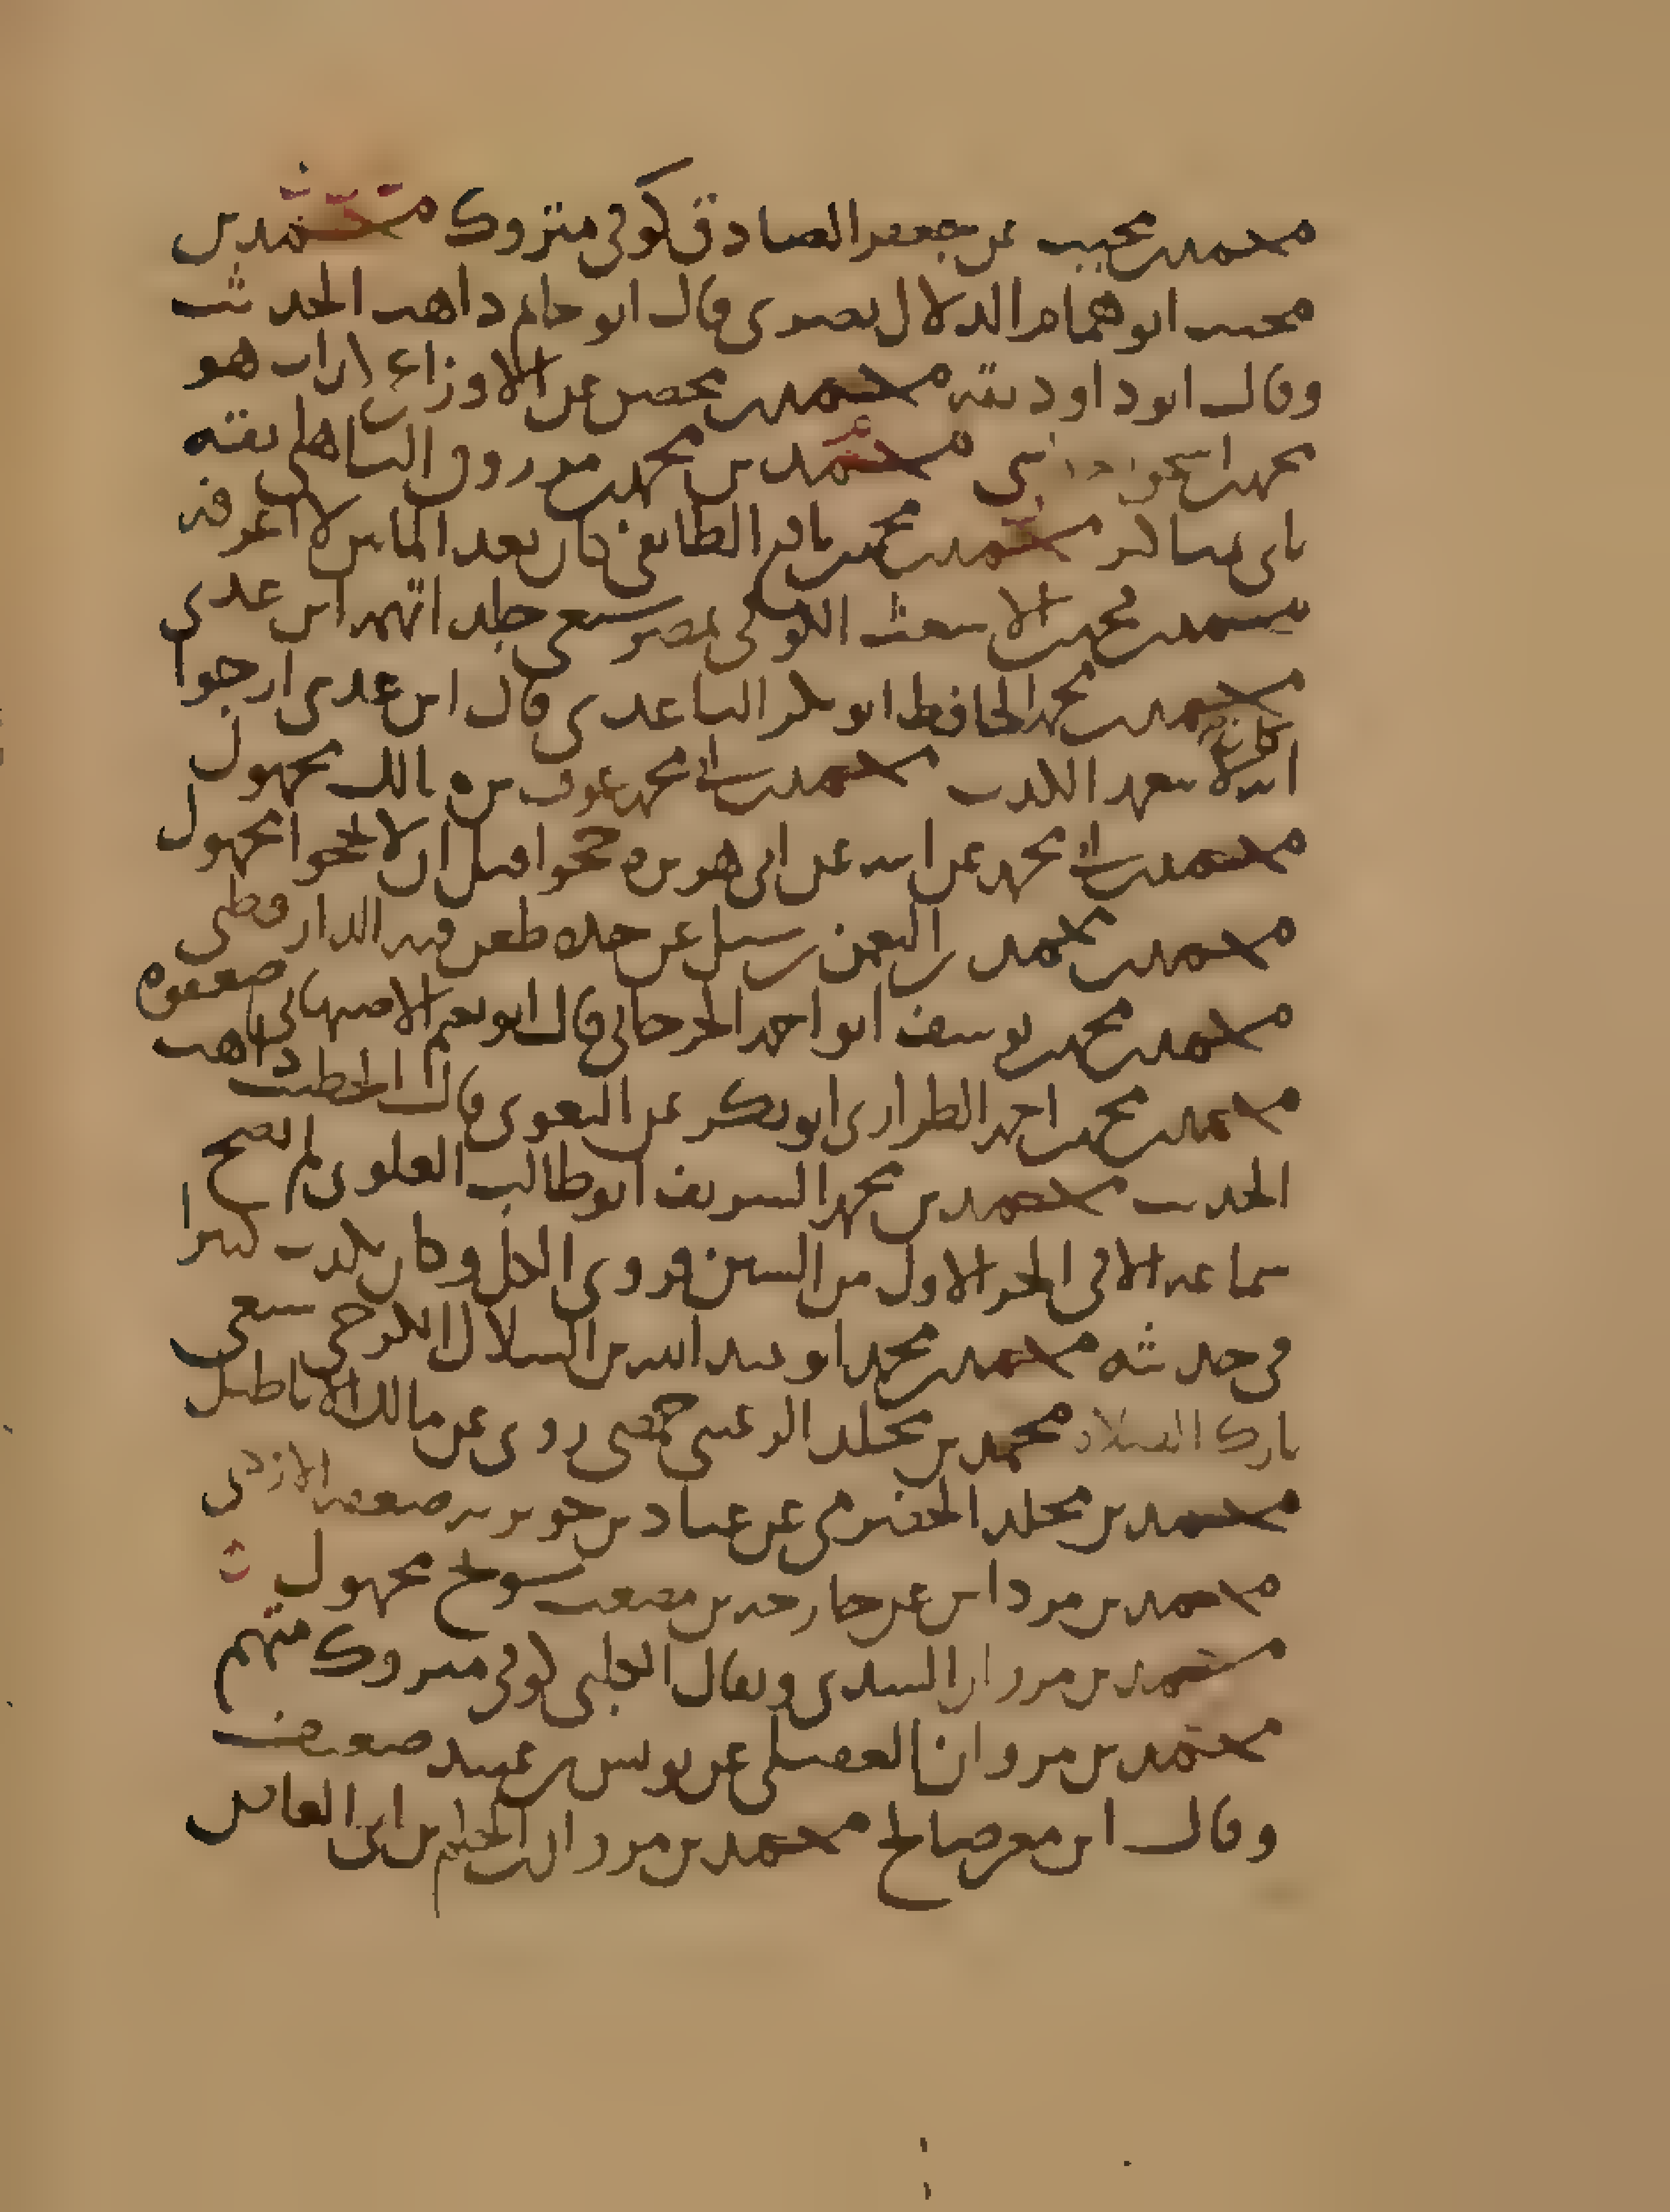 محمد بن مجيب عن جعفر الصادق كوفي متروك محمد بن
محبب ابو همام الدلال بصري قال ابو حاتم ذاهب الحديث
وقال ابو داود ثقة محمد بن محصن عن الاوزاعي اراه هو
محمد بن اسحق محمد بن محمد بن مرزوق الباهلي ثقة
محمد بن محمد بن نافع الطائفي كان بعد المائتين لا اعرفه
محمد بن محمد بن الاشعث الكوفي بمصر شيعي جلد اتهمه ابن عدي
محمد بن محمد الحافظ ابو بكر الباغندي قال ابن عدي ارجوا
انه كان لا يتعمد الكذب محمد بن محمد عوف بن مالك مجهول
محمد بن محمد عن ابيه عن ابي هريرة حجوا قبل ان لا تحجوا مجهول
محمد بن محمد بن النعمن بن شبل عن جده طعن فيه الدارقطني
محمد بن محمد بن يوسف ابو احمد الجرجاني قال ابو نعيم الاصبهاني ضعفوه
محمد بن محمد بن احمد الطرازي ابو بكر عن البغوي قال الخطيب ذاهب
الحديث محمد بن محمد الشريف ابو طالب العلوي لم يصح
سماعه الا في الجزء الاول من السنن فروى الكل وكان يكذب كثيرا
في حديثه محمد بن محمد ابو عبد الله بن السلال الكرخي شيعي
تارك الصلاة محمد بن مخلد الرعيني حمصي روى عن مالك الاباطيل
محمد بن مخلد الحضرمي عن عباد بن جويرية ضعفه الازدي
محمد بن مرداس عن خارجة بن مصعب شويخ مجهول ت
محمد بن مروان السدي ويقال الكلبي كوفي متروك متهم
محمد بن مروان العقيلي عن يونس بن عبيد ضعيف
وقال ابن معين صالح محمد بن مروان بن الحكم بن ابي العاص